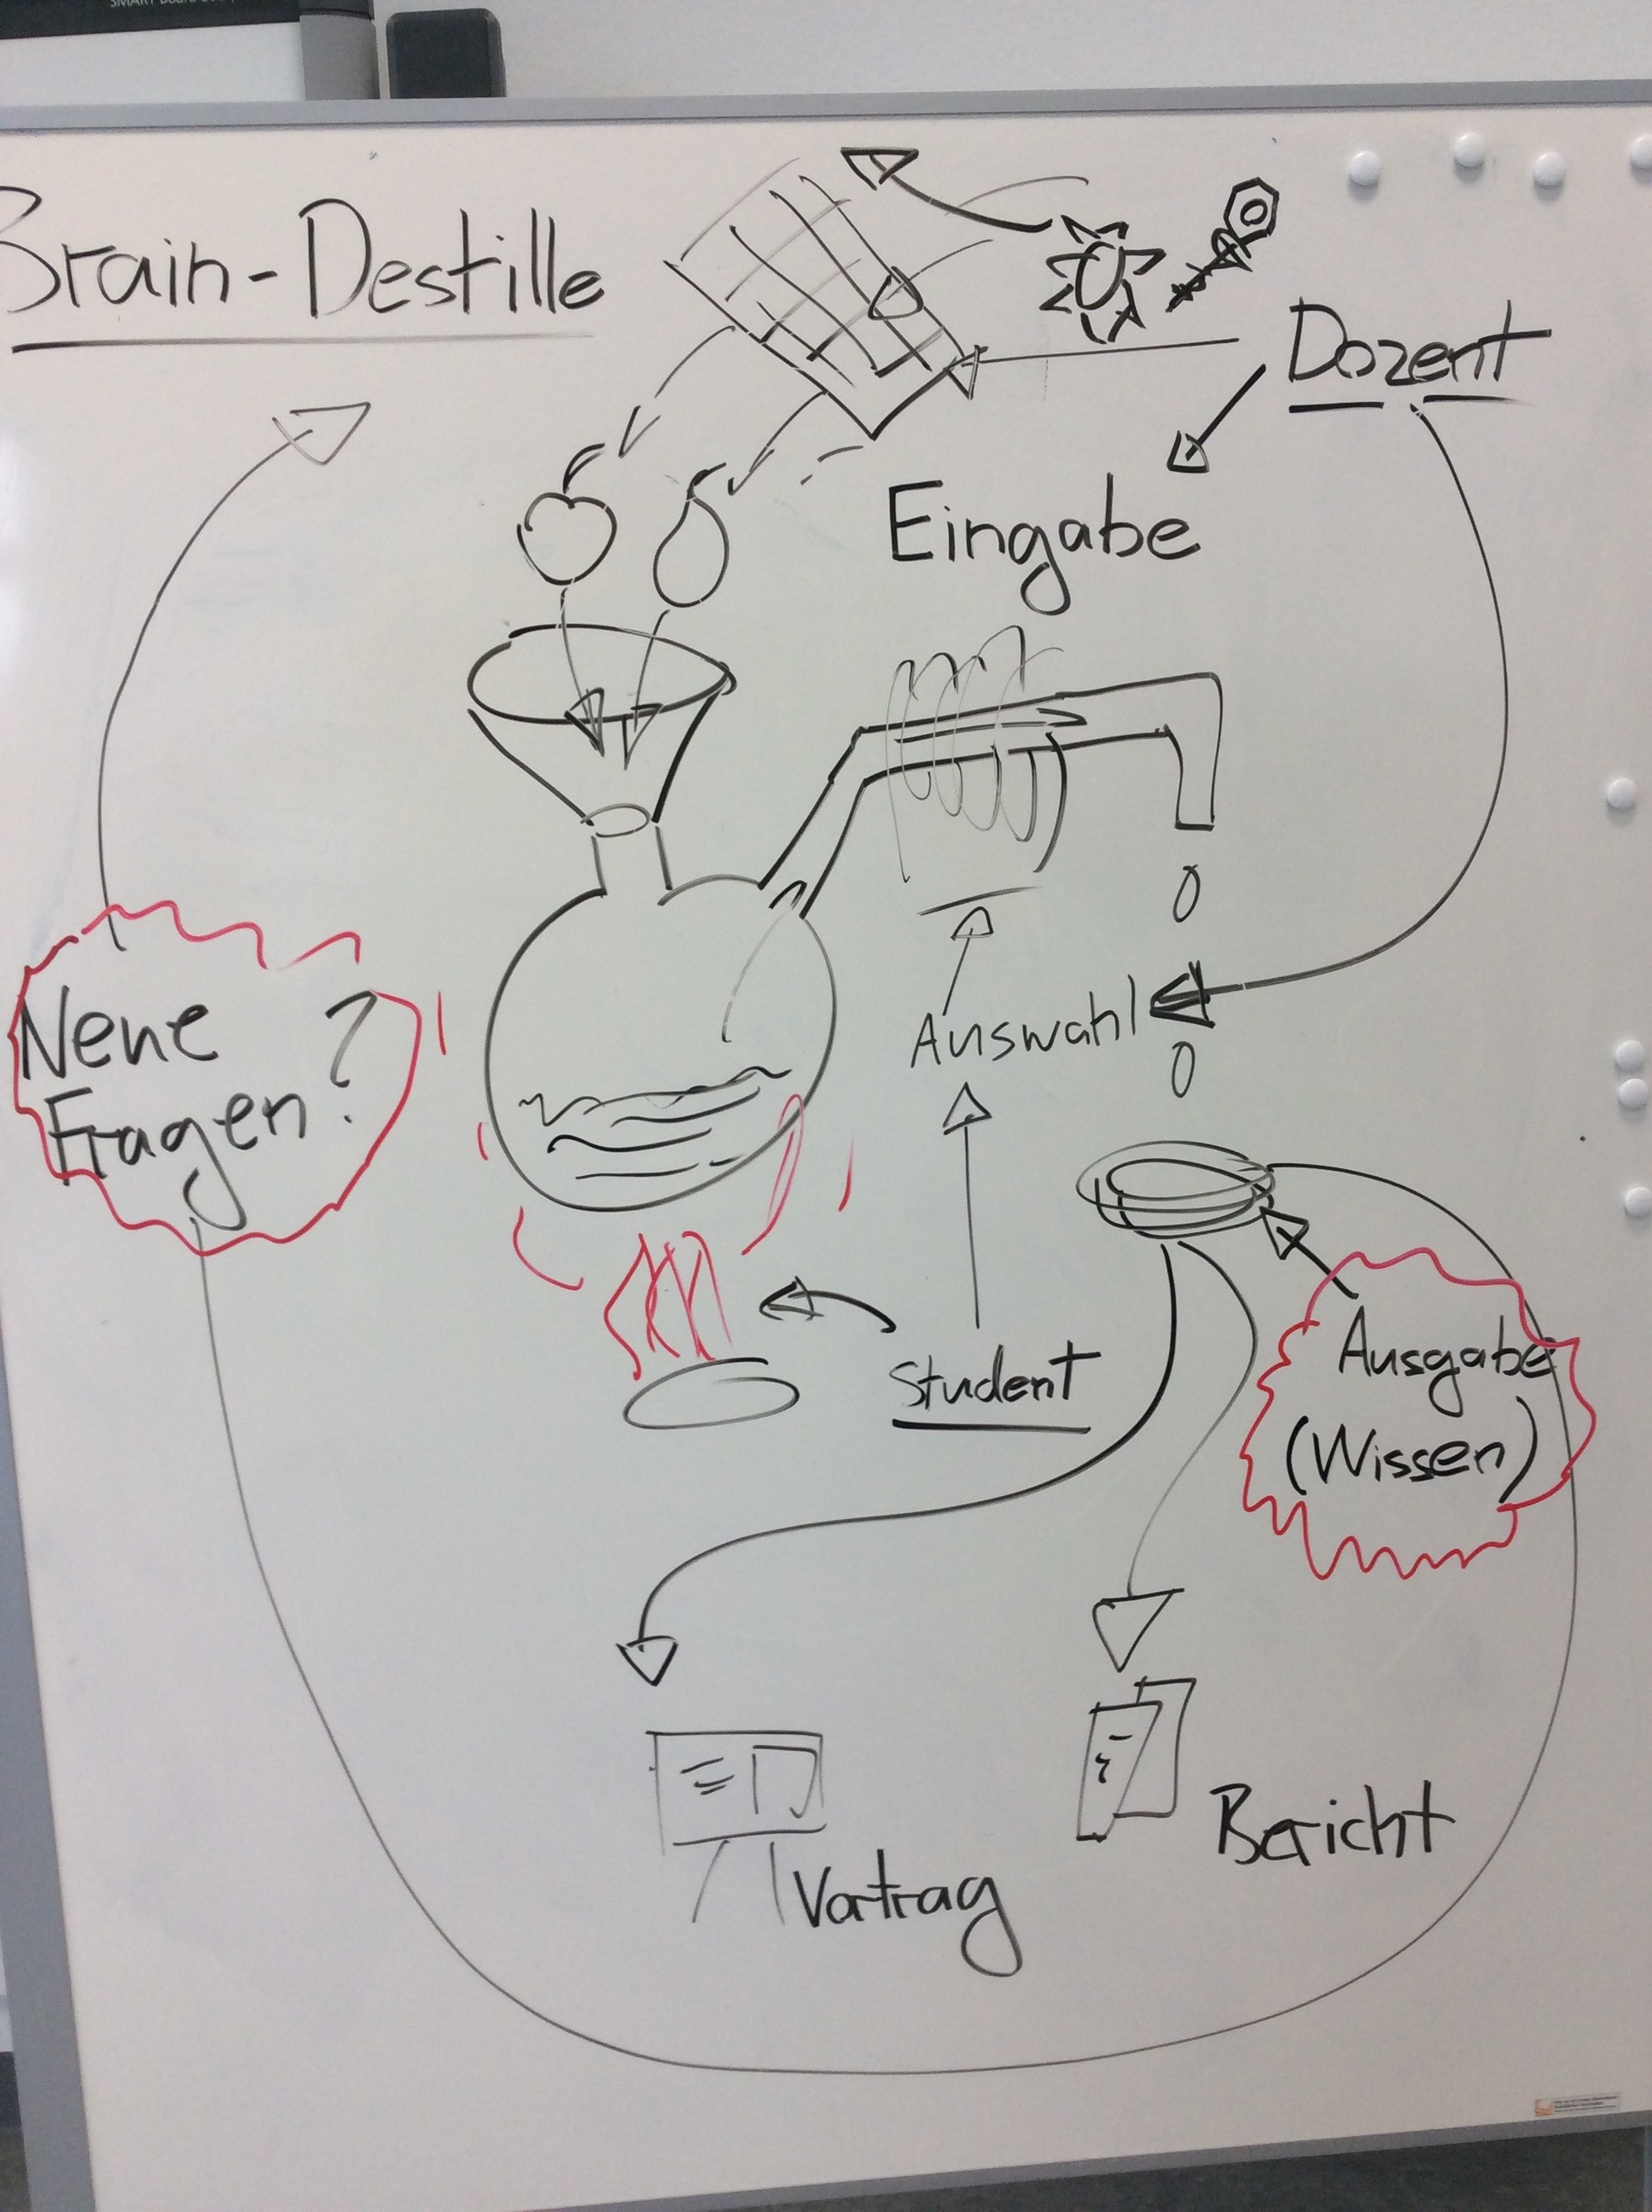 Brain-Destille
Dozent
Eingabe
Neue
Fragen?
Auswahl
Student
Ausgabe
(Wissen)
Bericht
Vortrag